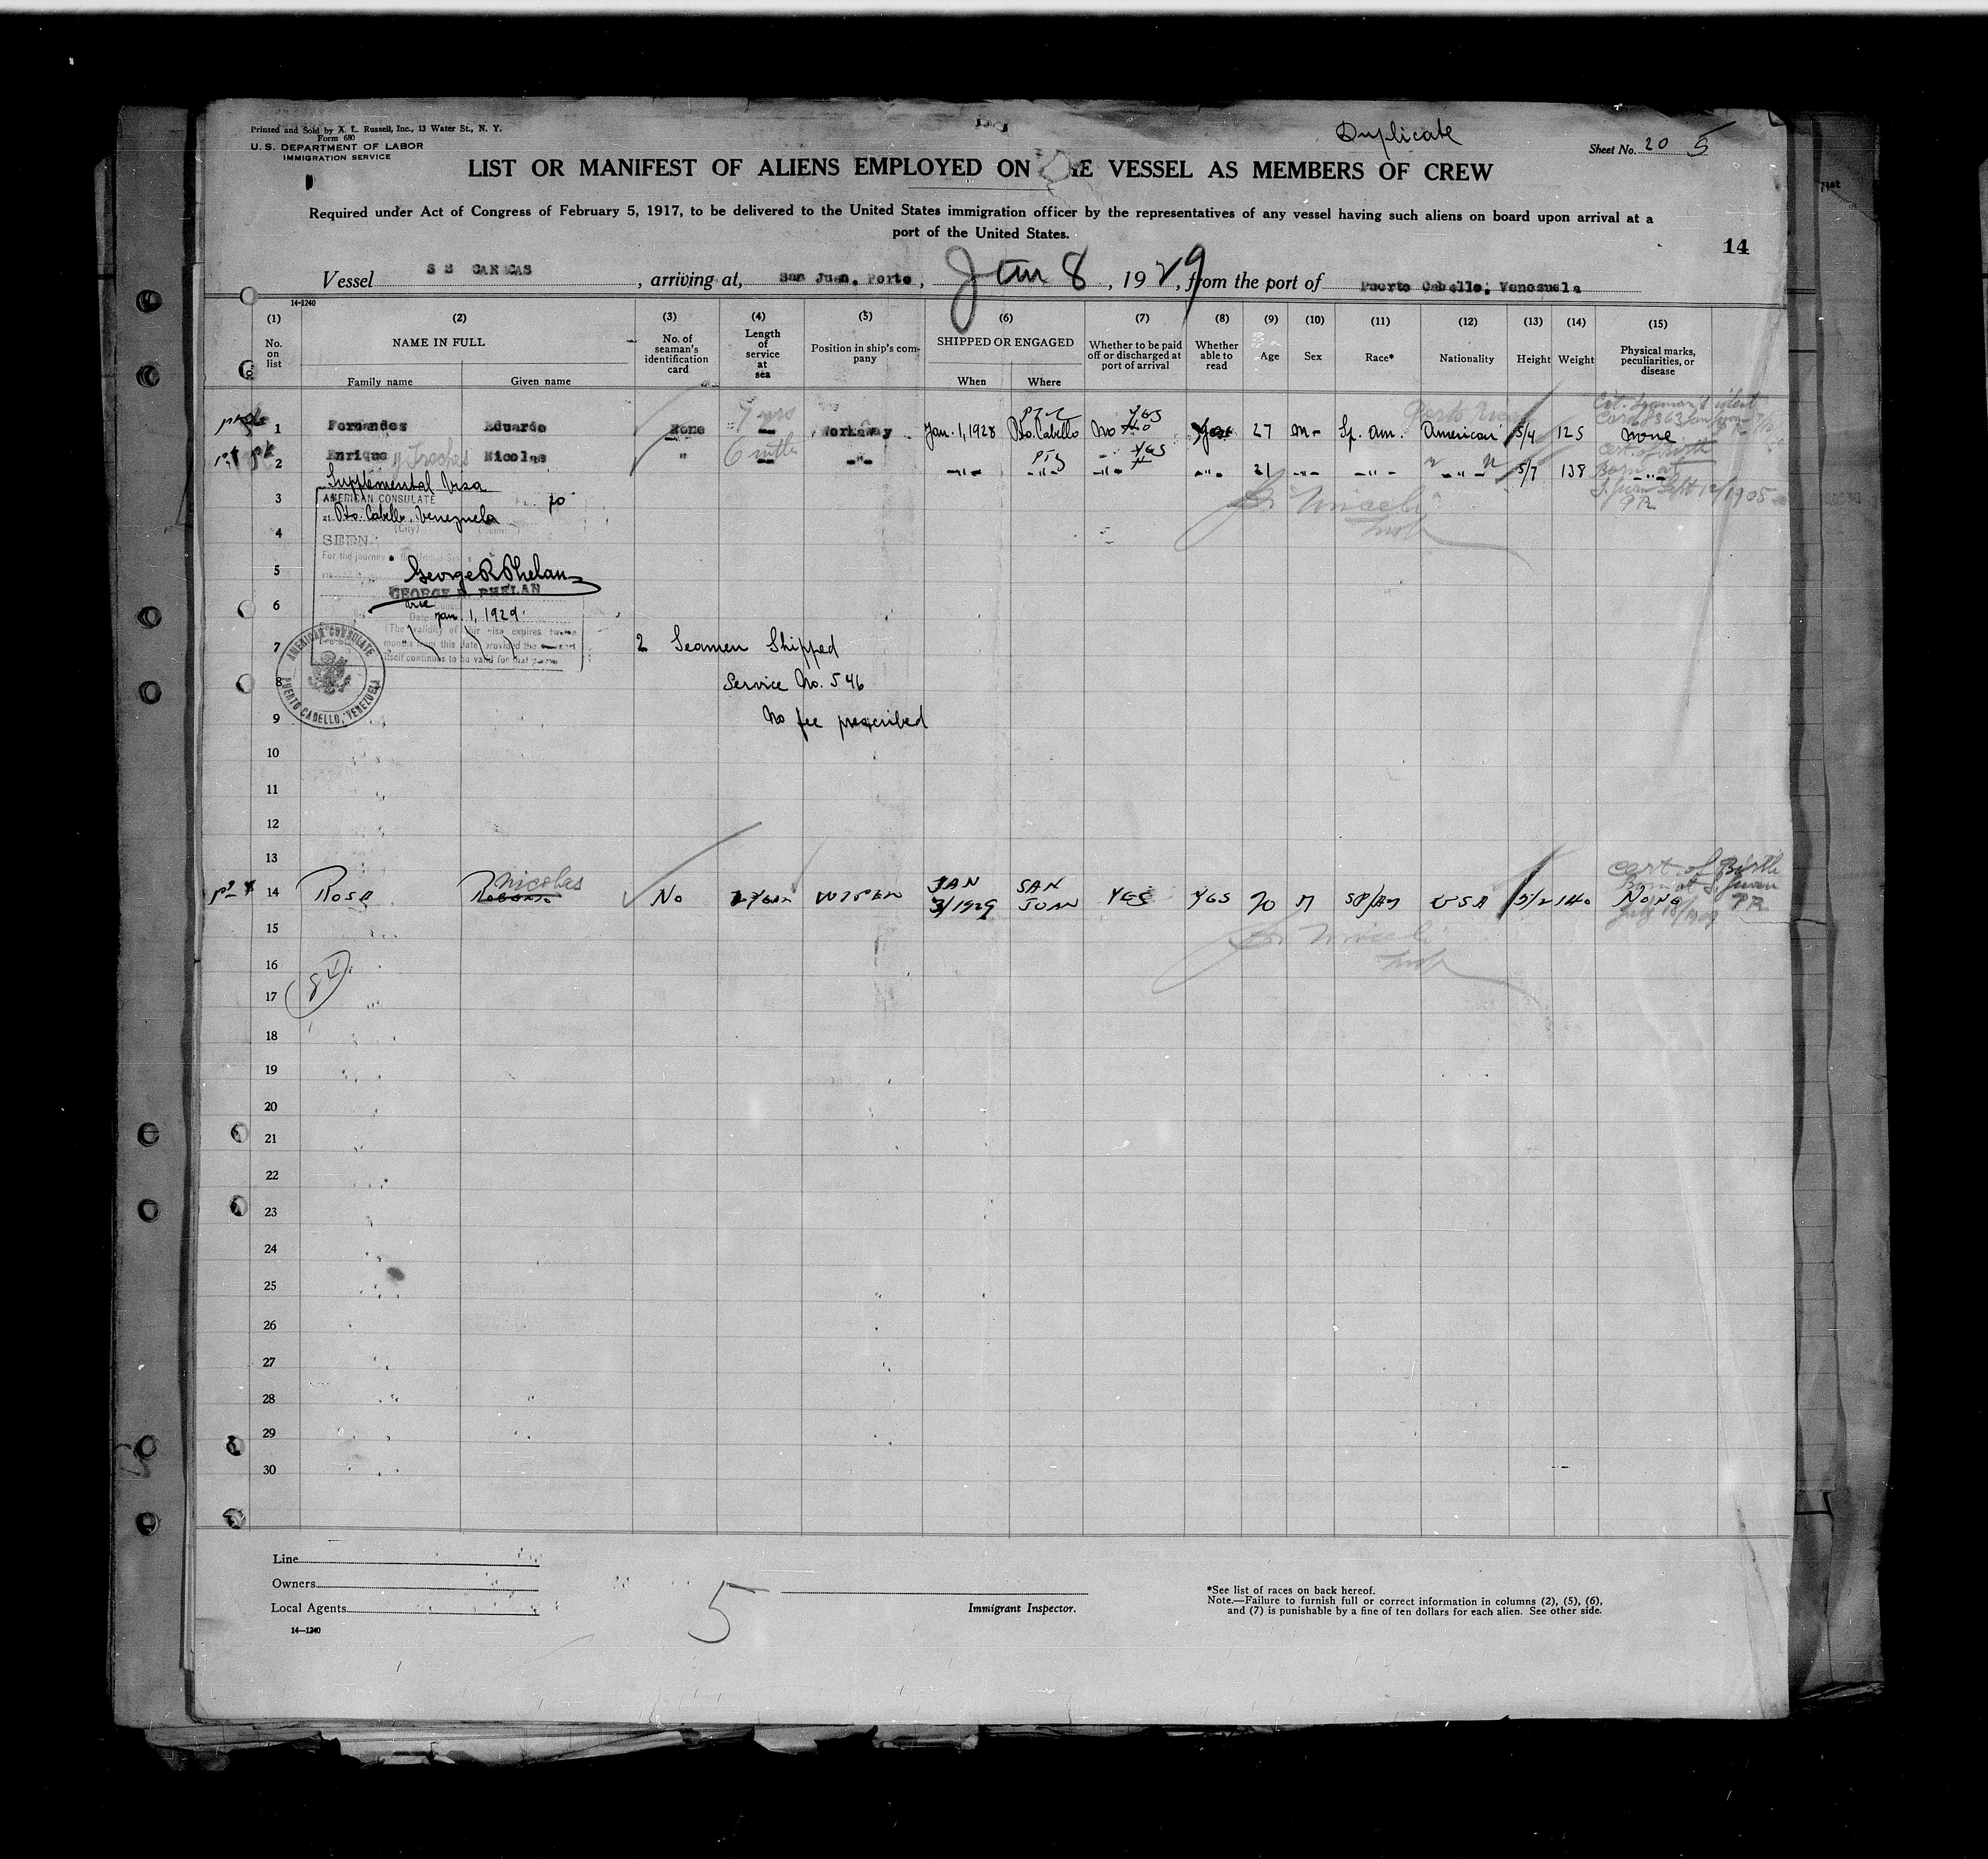 Printed and Sold by A. L. Russell, Inc., 13 Water St., N. Y.
Form 680
U. S. DEPARTMENT OF LABOR
IMMIGRATION SERVICE
Duplicate
Sheet No. 20 5
LIST OR MANIFEST OF ALIENS EMPLOYED ON VESSEL AS MEMBERS OF CREW
Required under Act of Congress of February 5, 1917, to be delivered to the United States immigration officer by the representatives of any vessel having such aliens on board upon arrival at a
port of the United States.
14
Vessel S S CARACAS, arriving at, San Juan, Porto, Jan 8, 1929, from the port of Puerto Cabello, Venezuela
14-1240
(1) (2) (3) (4) (5) (6) (7) (8) (9) (10) (11) (12) (13) (14) (15)
No. on list
NAME IN FULL
Family name Given name
No. of seaman's identification card
Length of service at sea
Position in ship's company
SHIPPED OR ENGAGED
When Where
Whether to be paid off or discharged at port of arrival
Whether able to read
Age
Sex
Race*
Nationality
Height
Weight
Physical marks, peculiarities, or disease
1 Fernandes Eduardo None 7 yrs Workaway Jan. 1, 1928 Pto. Cabello No YES Yes 27 M- Sp. Am. American 5/4 125 none
2 Enrique Nicolas " 6 -"- -"- -"- -"- YES -"- 21 -"- -"- -"- 5/7 138 -"-
cert. of Birth
Born at
S. Juan Sept 12/1905
PR
Supplemental Visa
3 AMERICAN CONSULATE
Pto. Cabello, Venezuela
(City)
4 SEEN
For the journey
5 George R Phelan
GEORGE R. PHELAN
6 Jan. 1, 1929.
(The validity of this visa expires twelve
7 months from this date provided the
itself continues to be valid for that
AMERICAN CONSULATE
PUERTO CABELLO, VENEZUELA
2 Seamen Shipped
8 Service No. 546
9 No fee prescribed
10
11
12
13
cert. of Birth
Born at S. Juan
PR
Nicolas
14 Rosa No WIPER JAN 3/1929 SAN JUAN YES YES 20 M SP/AM USA 5/2 140 NONE
15
16
17
18
19
20
21
22
23
24
25
26
27
28
29
30
Line
Owners
Local Agents
14—1240
5
Immigrant Inspector.
*See list of races on back hereof.
Note.—Failure to furnish full or correct information in columns (2), (5), (6),
and (7) is punishable by a fine of ten dollars for each alien. See other side.